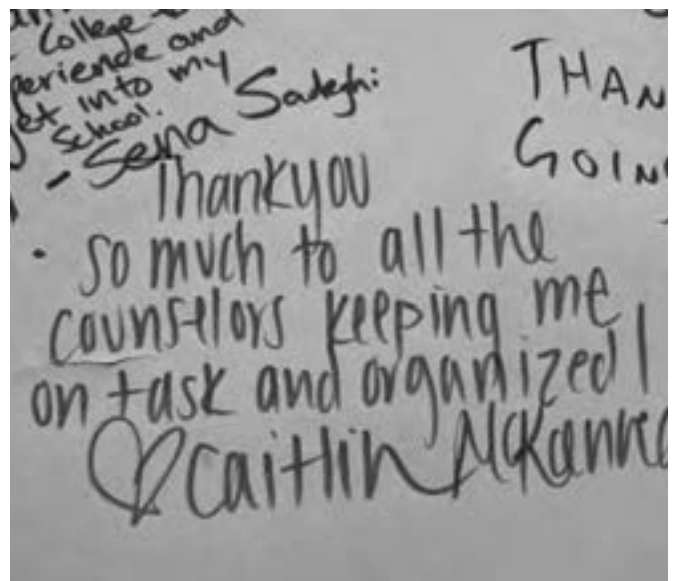 College
and
into my
School.
- Sena Sadeghi
THAN
GOIN
Thankyou
so much to all the
counselors keeping me
on task and organized!
♡ Caitlin